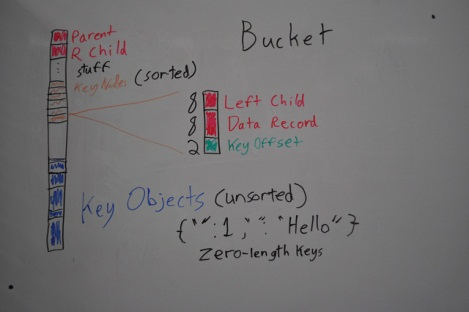 Bucket
Parent
R Child
stuff
KeyNodes (sorted)
8 Left Child
8 Data Record
2 Key Offset
Key Objects (unsorted)
{"":1,"":"Hello"}
Zero-length Keys